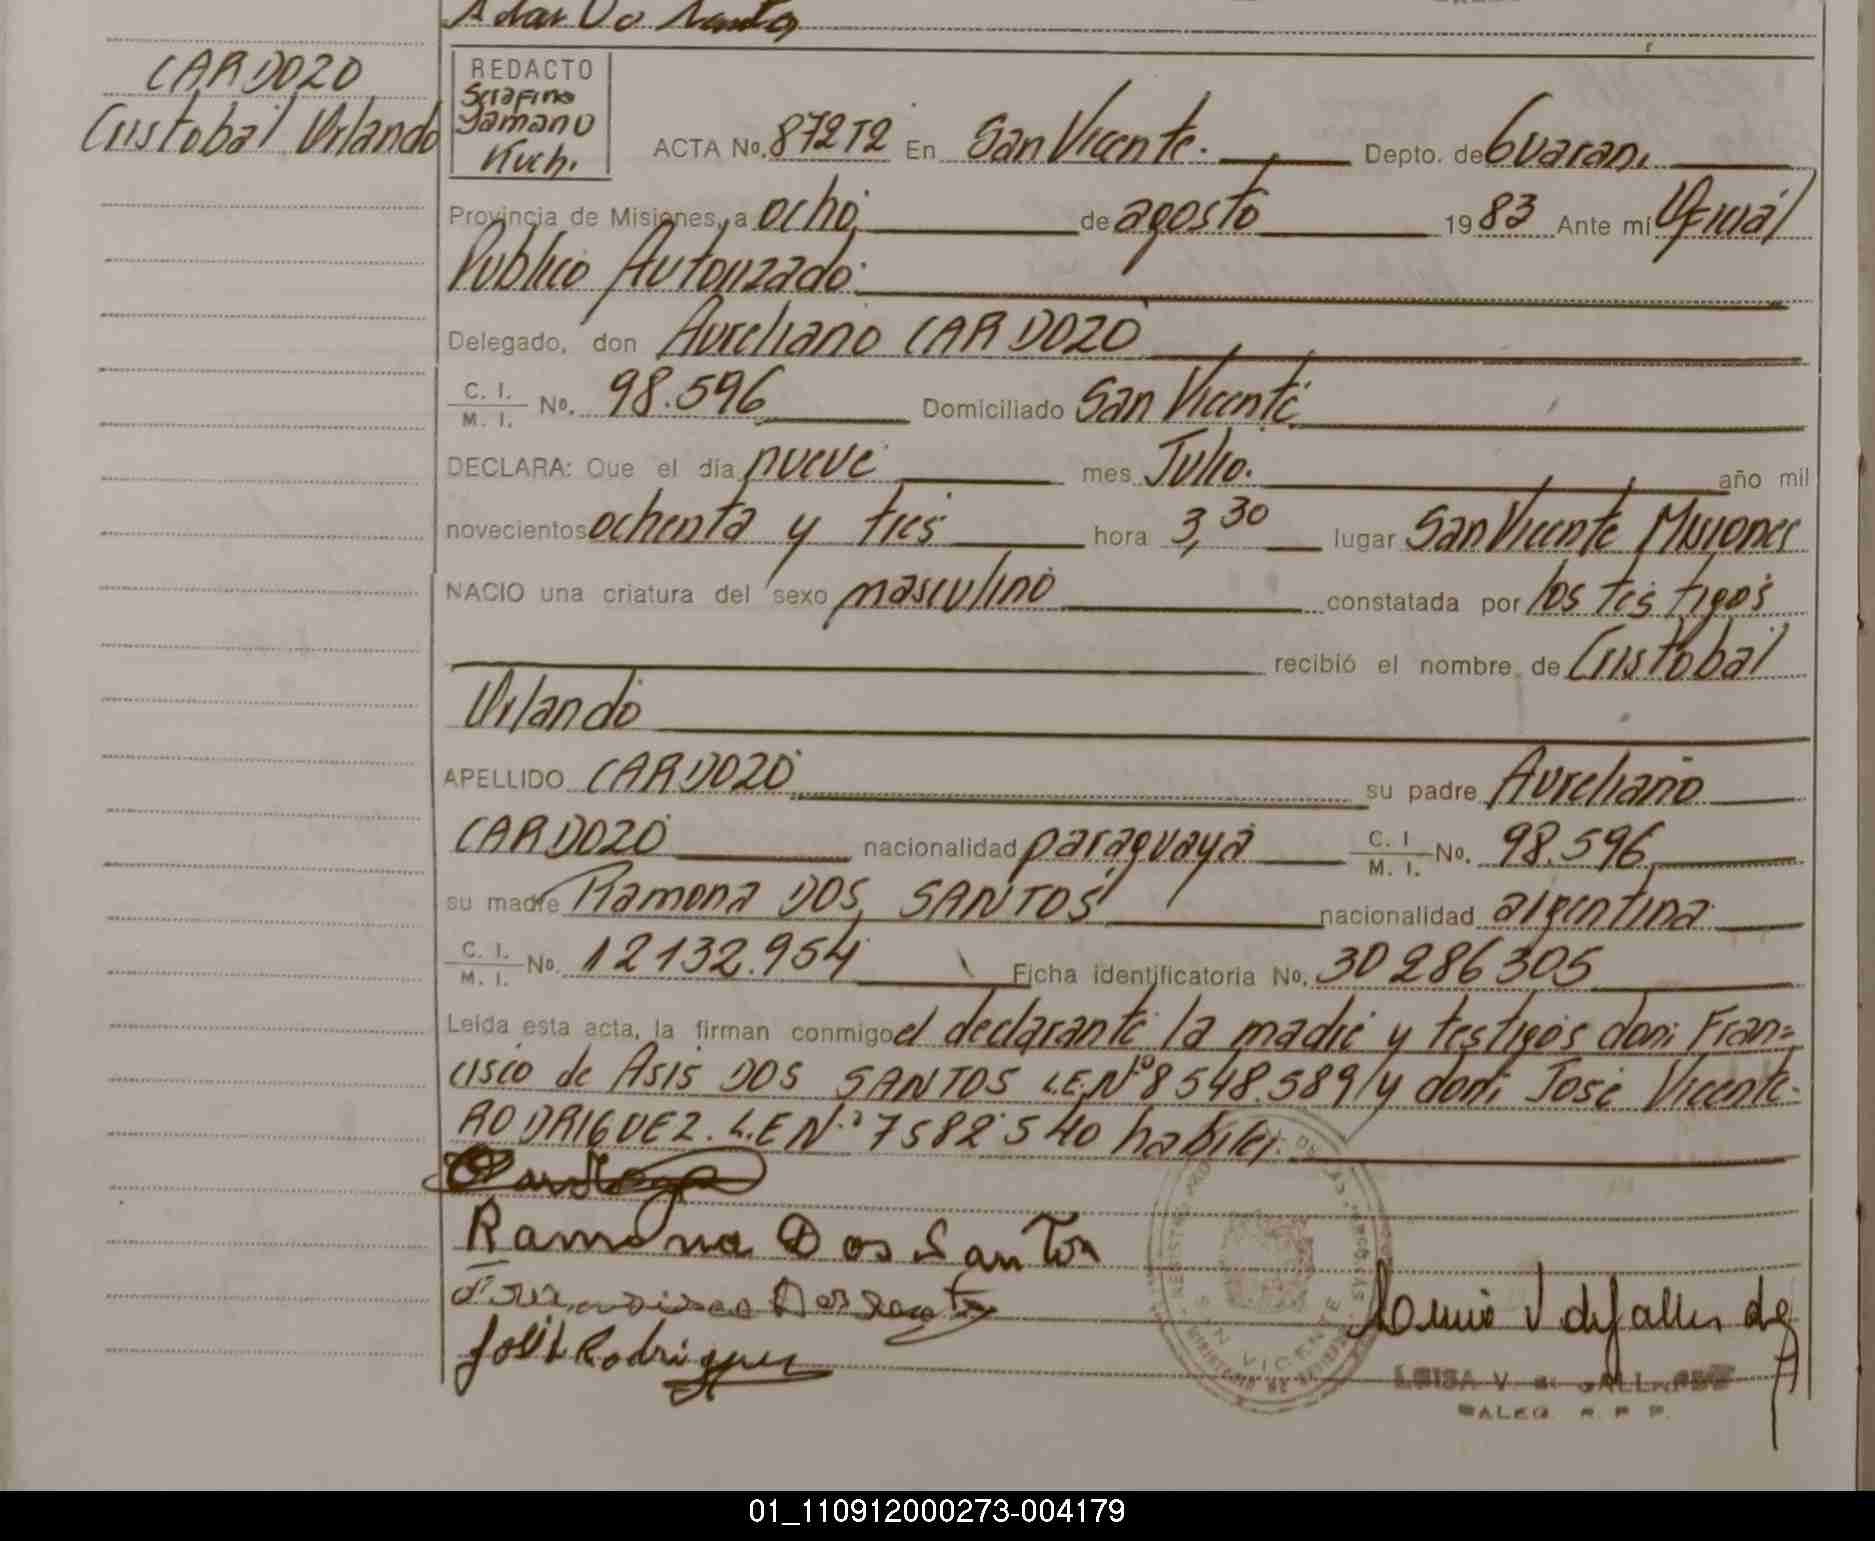 CARDOZO
Cristobal Orlando
REDACTO
Serafino
Kuch.
ACTA No. 872T2 En San Vicente. Depto. de Guarani
Provincia de Misiones, a ocho de agosto 1983 Ante mi Oficial
Publico Autorizado
Delegado, don Aureliano CARDOZO
C. I.
M. I. No. 98.596 Domiciliado San Vicente
DECLARA: Que el día nueve mes Julio. año mil
novecientos ochenta y tres hora 3,30 lugar San Vicente Misiones
NACIO una criatura del sexo masculino constatada por los testigos
recibió el nombre de Cristobal
Orlando
APELLIDO CARDOZO su padre Aureliano
CARDOZO nacionalidad paraguaya C. I. M. I. No. 98.596
su madre Ramona DOS SANTOS nacionalidad argentina
C. I.
M. I. No. 12132.954 Ficha identificatoria No. 30286305
Leída esta acta, la firman conmigo el declarante la madre y testigos don: Fran=
cisco de Asis DOS SANTOS L.E.Nº 8548.589 y don: José Vicente
RODRIGUEZ. L.E Nº 7582540 habiles.
Ramona Dos Santos
José Rodriguez
SAN VICENTE
01_110912000273-004179